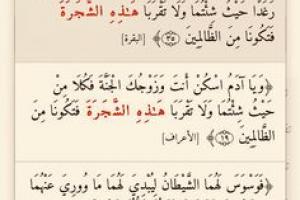 رَغَدًا حَيْثُ شِئْتُمَا وَلَا تَقْرَبَا هَـٰذِهِ الشَّجَرَةَ
فَتَكُونَا مِنَ الظَّالِمِينَ ﴿٣٥﴾ [البقرة]
﴿وَيَا آدَمُ اسْكُنْ أَنتَ وَزَوْجُكَ الْجَنَّةَ فَكُلَا مِنْ
حَيْثُ شِئْتُمَا وَلَا تَقْرَبَا هَـٰذِهِ الشَّجَرَةَ فَتَكُونَا مِنَ
الظَّالِمِينَ ﴿١٩﴾ [الأعراف]
﴿فَوَسْوَسَ لَهُمَا الشَّيْطَانُ لِيُبْدِيَ لَهُمَا مَا وُورِيَ عَنْهُمَا